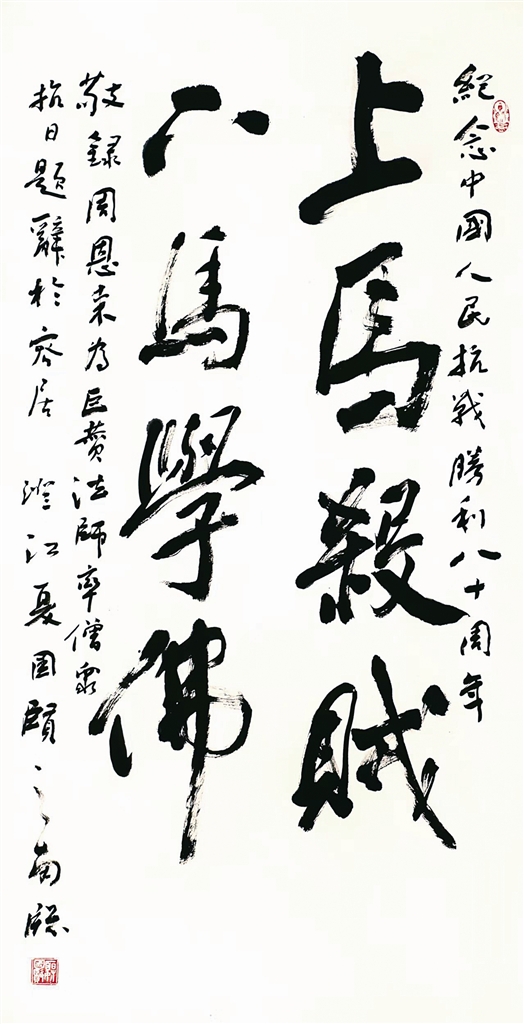 紀念中國人民抗戰勝利八十周年
上馬殺賊
下馬學佛
敬錄周恩來為巨贊法師率僧眾
抗日題辭於居 澄江夏國之南